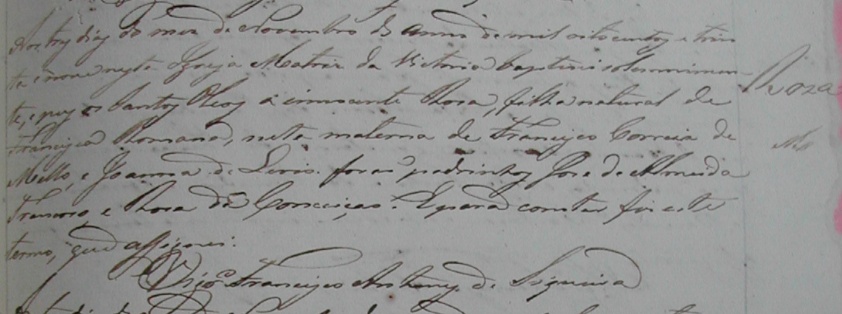 Aos tres dias do mez de Novembro de anno de mil oitocentos e trin
ta e nove nesta Igreja Matriz da Victoria baptizei solemnimen-
te, e puz os Santos Oleos a innocente Rosa, filha natural de
Francisca Romana, neta materna de Francisco Correia de
Mello, e Joanna de forão padrinhos Jose de Almeida
e Rosa da Conceição. E para constar fiz este
termo, que assignei.
Rosa
Vigº Francisco Antunes de Siqueira